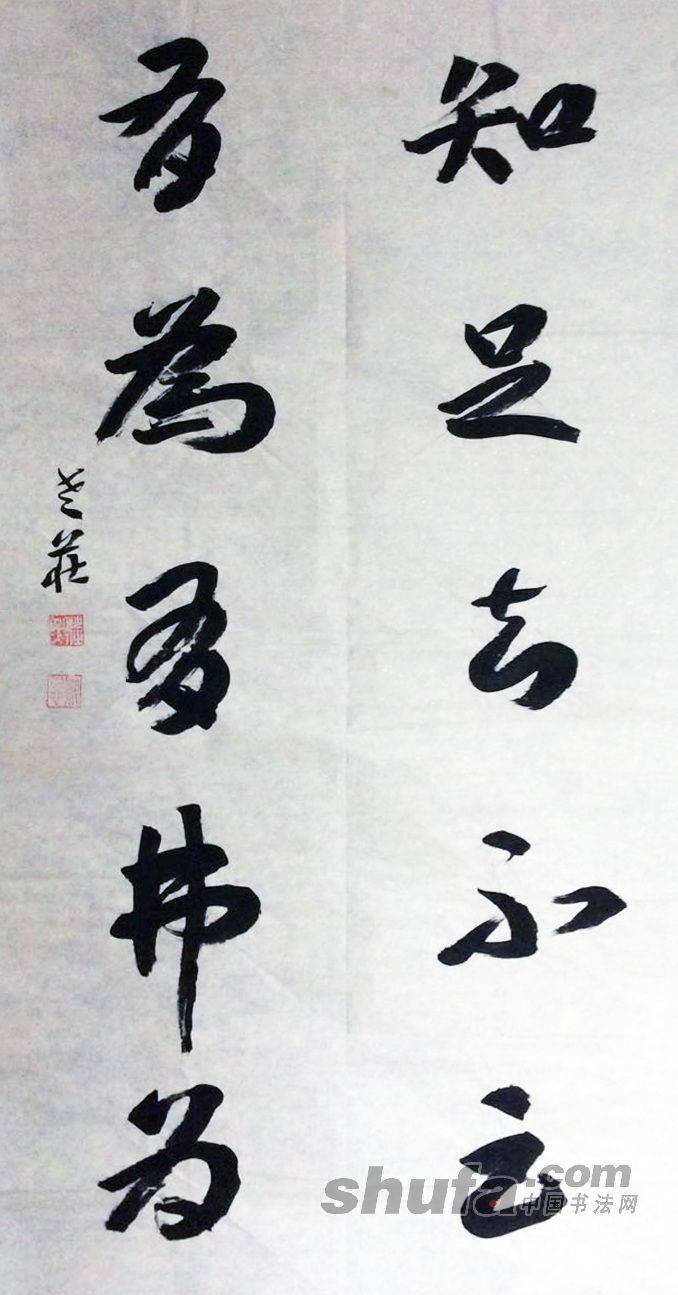 知足知不足
有為有弗为
老莊
shufa.com
中国书法网